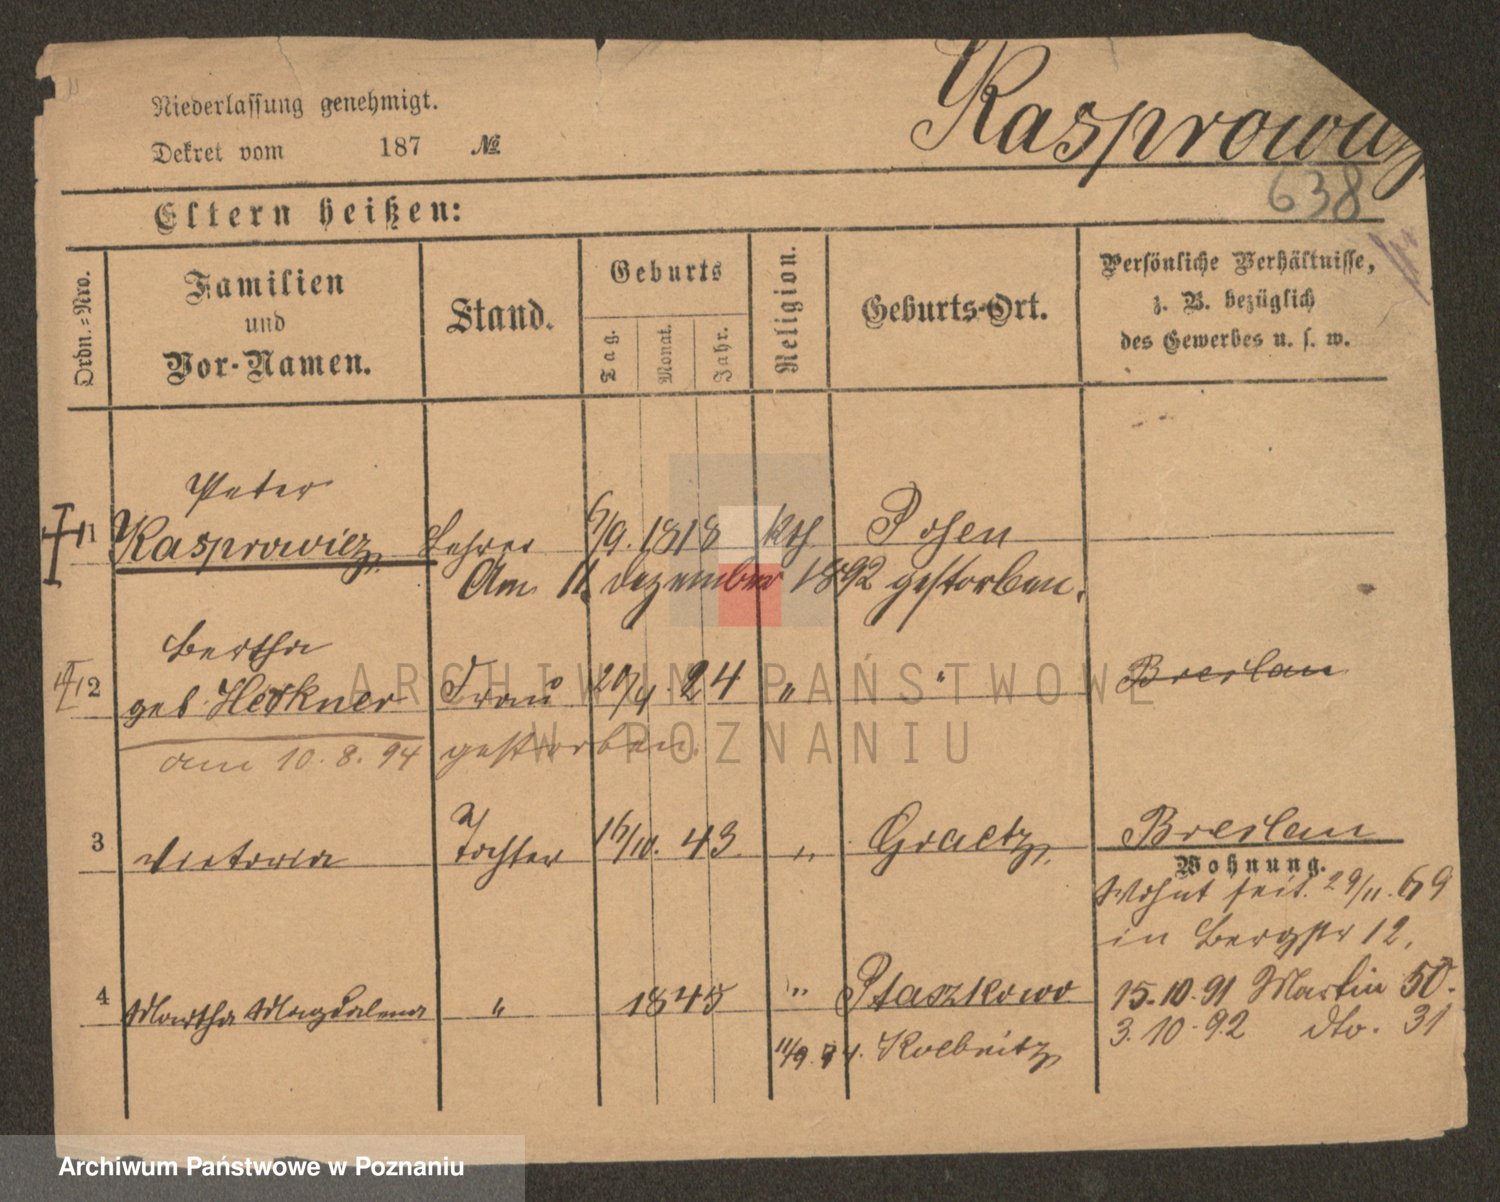 Niederlassung genehmigt.
Dekret vom 187 №
Kasprowicz
638
Eltern heißen:
Ordn.=Nro.
Familien
und
Vor-Namen.
Stand.
Geburts
Tag.
Monat.
Jahr.
Religion.
Geburts-Ort.
Persönliche Verhältnisse,
z. B. bezüglich
des Gewerbes u. s. w.
Peter
1 Kasprowicz Lehrer 6/9. 1818 kth Posen
Am 11. Dezember 1892 gestorben.
Bertha
2 geb. Frau 24 " " Breslau
am 10. 8. 94 gestorben.
3 Victoria Tochter 43. " Graetz, Breslau
Wohnung.
Wohnt seit 29/11. 69
in Bergstr 12.
4 Martha Magdalena " 1845 " Ptaszkowo
15.10.91 Martin 50.
3. 10. 92 dto. 31
ARCHIWUM PAŃSTWOWE
W POZNANIU
Archiwum Państwowe w Poznaniu